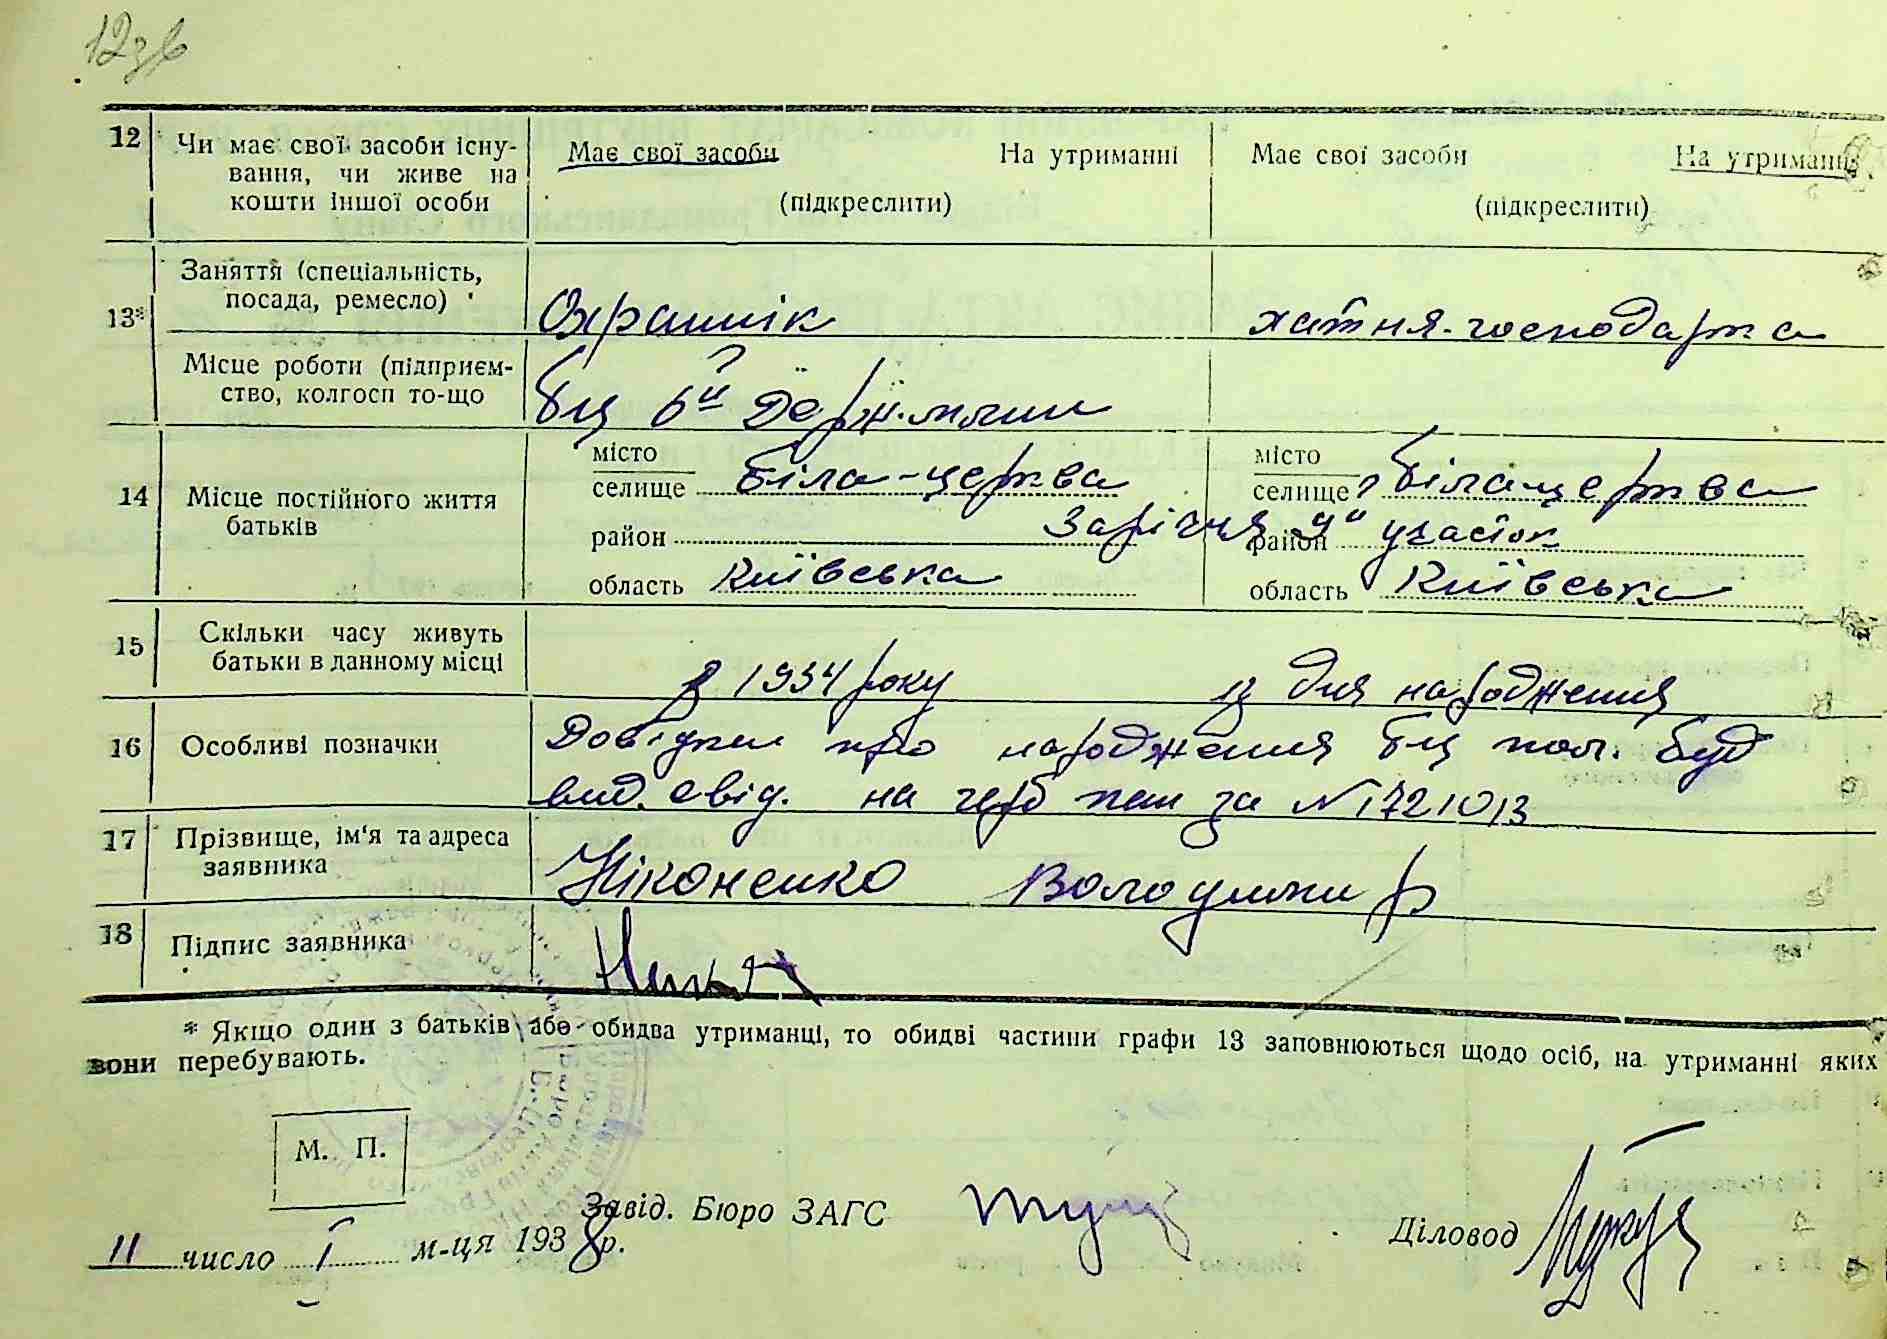 12зв
12 Чи має свої засоби існу- Має свої засоби На утриманні Має свої засоби На утриманні
вання, чи живе на
кошти іншої особи (підкреслити) (підкреслити)
Заняття (спеціальність,
посада, ремесло)
13* Охраннік хатня-господарка
Місце роботи (підприєм-
ство, колгосп то-що бц 6й Держ.млин
місто місто
селище Біла-церква селище Біла-церква
14 Місце постійного життя
батьків
район Зарічя 4й участок район
область Київська область Київська
15 Скільки часу живуть
батьки в данному місці з 1934 року із дня народження
16 Особливі позначки Довідки про народження бц пол. буд
вид. свід. на герб пап за №1721013
17 Прізвище, ім'я та адреса
заявника Ніконенко Володимир
18 Підпис заявника
* Якщо один з батьків або обидва утриманці, то обидві частини графи 13 заповнюються щодо осіб, на утриманні яких
вони перебувають.
М. П.
Завід. Бюро ЗАГС
Діловод
11 число I м-ця 1938 р.